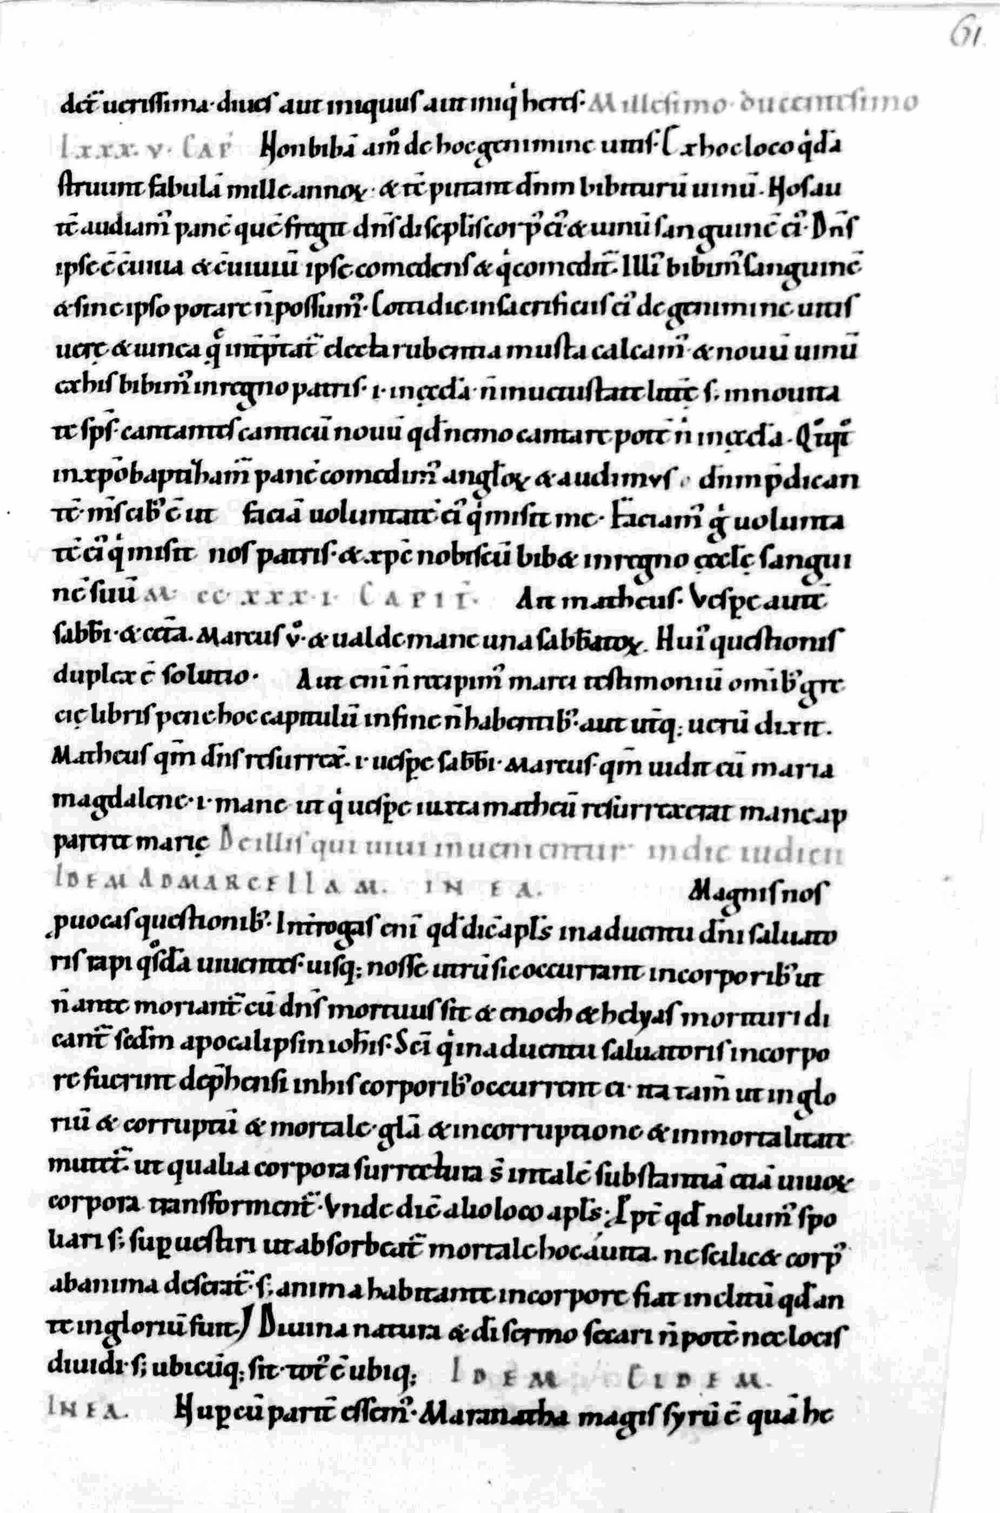 61
det̄ uerissima· diues aut iniquus aut iniq̇ heres· Millesimo· ducentesimo
lxxx.v· Cap̄ Non bibā am̊ de hoc genimine uitis· Ex hoc loco q̇dā
struunt fabulā mille annoꝝ· & tc̄ putant dn̄m bibiturū uinū. Nos au
tē audiam᷒ panē quē fregit dn̄s discipl̄is corp᷒ ei᷒ & uinū sanguinē ei᷒· Dn̄s
ipse ē c̄uiua & c̄uiuiū ipse comedens & q̇ comedit̄· Illi᷒ bibim᷒ sanguinē
& sine ipso potare n̄ possum᷒· Cottidie in sacrificiis ei᷒ de genimine uitis
uerę & uinea q̨ int̄p̄tat᷑ electa rubentia musta calcam᷒ & nouū uinū
ex his bibim᷒ in regno patris· i· in ęcc̄la· n̄ in uetustate litt̄ę s; in nouita
te sp̄s· cantantes canticū nouū qd̄ nemo cantare potē n̄ in ęcc̄la· Q͛q͛
in xp̄o baptizam᷑ panē comedim᷒ angl̄oꝝ & audimus dn̄m p̄dican
tē· m̄s cib᷒ ē ut faciā uoluntatē ei᷒ q̇ misit me· Faciam᷒ g̊ uolunta
tē ei᷒ q̇ misit nos patris· & xp̄c nobiscū bib& in regno ęccl̄ę sangui
nē suū M· cc·xxxi· Capit̄· Ait matheus· Vesꝑe autē
sabb̄i· & cet̄a. Marcus v̊· & ualde mane una sabb̄atoꝝ. Hui᷒ questionis
duplex ē solutio· Aut eni᷑ n̄ recipim᷒ marci testimoniū omib᷒ grę
cię libris pene hoc capitulū in fine n̄ habentib᷒· aut ut̄q; uerū dixit.
Matheus qm̄ dn̄s resurrex̄· i· uesꝑe sabb̄i· Marcus· qm̄ uidit eū maria
magdalene· i· mane ut q̇ uesꝑe iuxta matheū resurrexerat mane ap
pareret marię De illis qui uiui inuenientur in die iudicii
Idem ad Marcellam. in ea. Magnis nos
ꝓuocas questionib᷒· Int̄rogas eni᷑ qd̄ dic̄ apl̄s in aduentu dn̄i saluato
ris rapi q̊sdā uiuentes· uisq; nosse utrū sic occurrant in corporib᷒ ut
n̄ ante moriant᷑ cū dn̄s mortuus sit & enoch & helyas morituri di
cant᷑ sed̄m apocalipsin ioh̄is· Sci᷑ q̇ in aduentu saluatoris in corpo
re fuerint dep̄hensi in his corporib᷒ occurrent ei· ita tam̄ ut inglo
riū & corruptū & mortale· glā & incorruptione & inmortalitate
mutet᷑· ut qualia corpora surrectura s̄ in talē substantiā etiā uiuoꝝ
corpora transforment᷑· Vnde dic̄ alio loco apl̄s· Ipt̄ qd̄ nolum᷒ spo
liari s; suꝑuestiri ut absorbeat᷑ mortale hoc á uita. ne scilic& corp᷒
ab anima deserat᷑· s; anima habitante in corpore fiat inclitū qd̄ an
te ingloriū fuit/ Diuina natura & di sermo secari n̄ potē nec locis
diuidi· s; ubicūq; sit· tot᷒ ē ubiq; Idem Eidem.
In ea. Nuꝑ cū parit̄ essem᷒· Maranatha magis syrū ē quā he